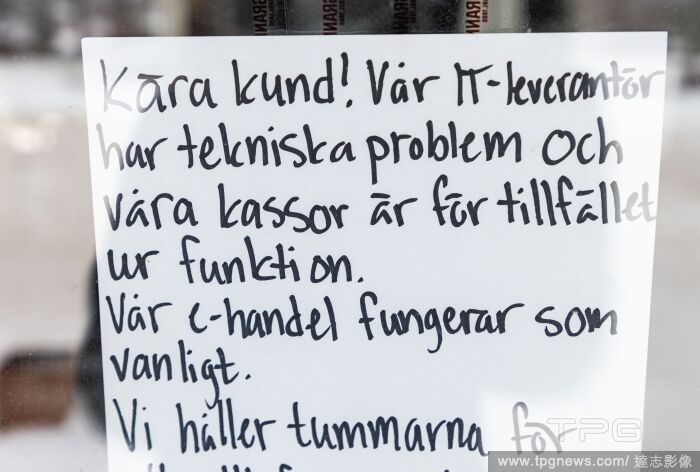 Kāra kund! Vår IT-leverantör
har tekniska problem och
våra kassor är för tillfället
ur funktion.
Vår e-handel fungerar som
vanligt.
Vi håller tummarna för
TPG
www.tpgnews.com/ 達志影像